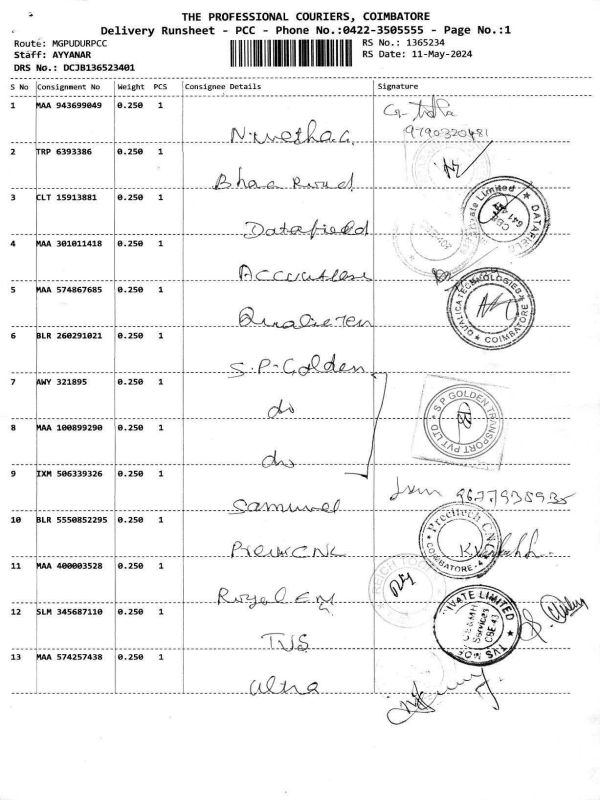 THE PROFESSIONAL COURIERS, COIMBATORE
Delivery Runsheet - PCC - Phone No.:0422-3505555 - Page No.:1
Route: MGPUDURPCC
RS No.: 1365234
Staff: AYYANAR
RS Date: 11-May-2024
DRS No.: DCJB136523401
S No Consignment No Weight PCS Consignee Details Signature
1 MAA 943699049 0.250 1
Nivetha.G.
9790320481
2 TRP 6393386 0.250 1
Bhaa
3 CLT 15913881 0.250 1
Datafield
vate Limited ★ DATAFIEL
641
CBE
4 MAA 301011418 0.250 1
5 MAA 574867685 0.250 1
QUALICA TECHNOLOGIES ★ COIMBATORE
6 BLR 260291021 0.250 1
S.P-Golden
7 AWY 321895 0.250 1
do
S.P GOLDEN TRANSPORT PVT LTD
8 MAA 100899290 0.250 1
do
9 IXM 506339326 0.250 1
Samuvel
9677938935
10 BLR 5550852295 0.250 1
Precitech CNC
COIMBATORE
11 MAA 400003528 0.250 1
Royal
12 SLM 345687110 0.250 1
TVS
IVATE LIMITED ★ TVS MOB
Services
CBE-43
13 MAA 574257438 0.250 1
Ultra